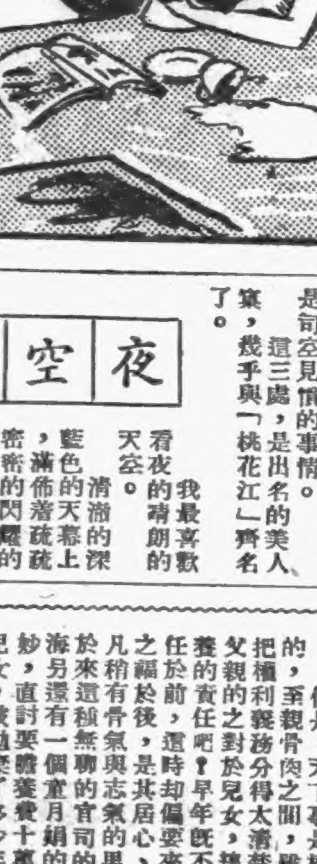 是司空見慣的事情。
這三處，是出名的美人
窠，幾乎與「桃花江」齊名
了。
夜空
我最喜歡
看夜的晴朗的
天空。
清澈的深
藍色的天幕上
，滿佈着疏疏
密密的閃耀的
的，至親骨肉之間，
把權利義務分得太清
父親的之對於兒女，
養的責任吧？早年既不
任於前，這時却偏要來
之福於後，是其居心，
凡稍有骨氣與志氣的男
於來這種無聊的官司的
海另還有一個童月娟的
妙，直討要贍養費十萬